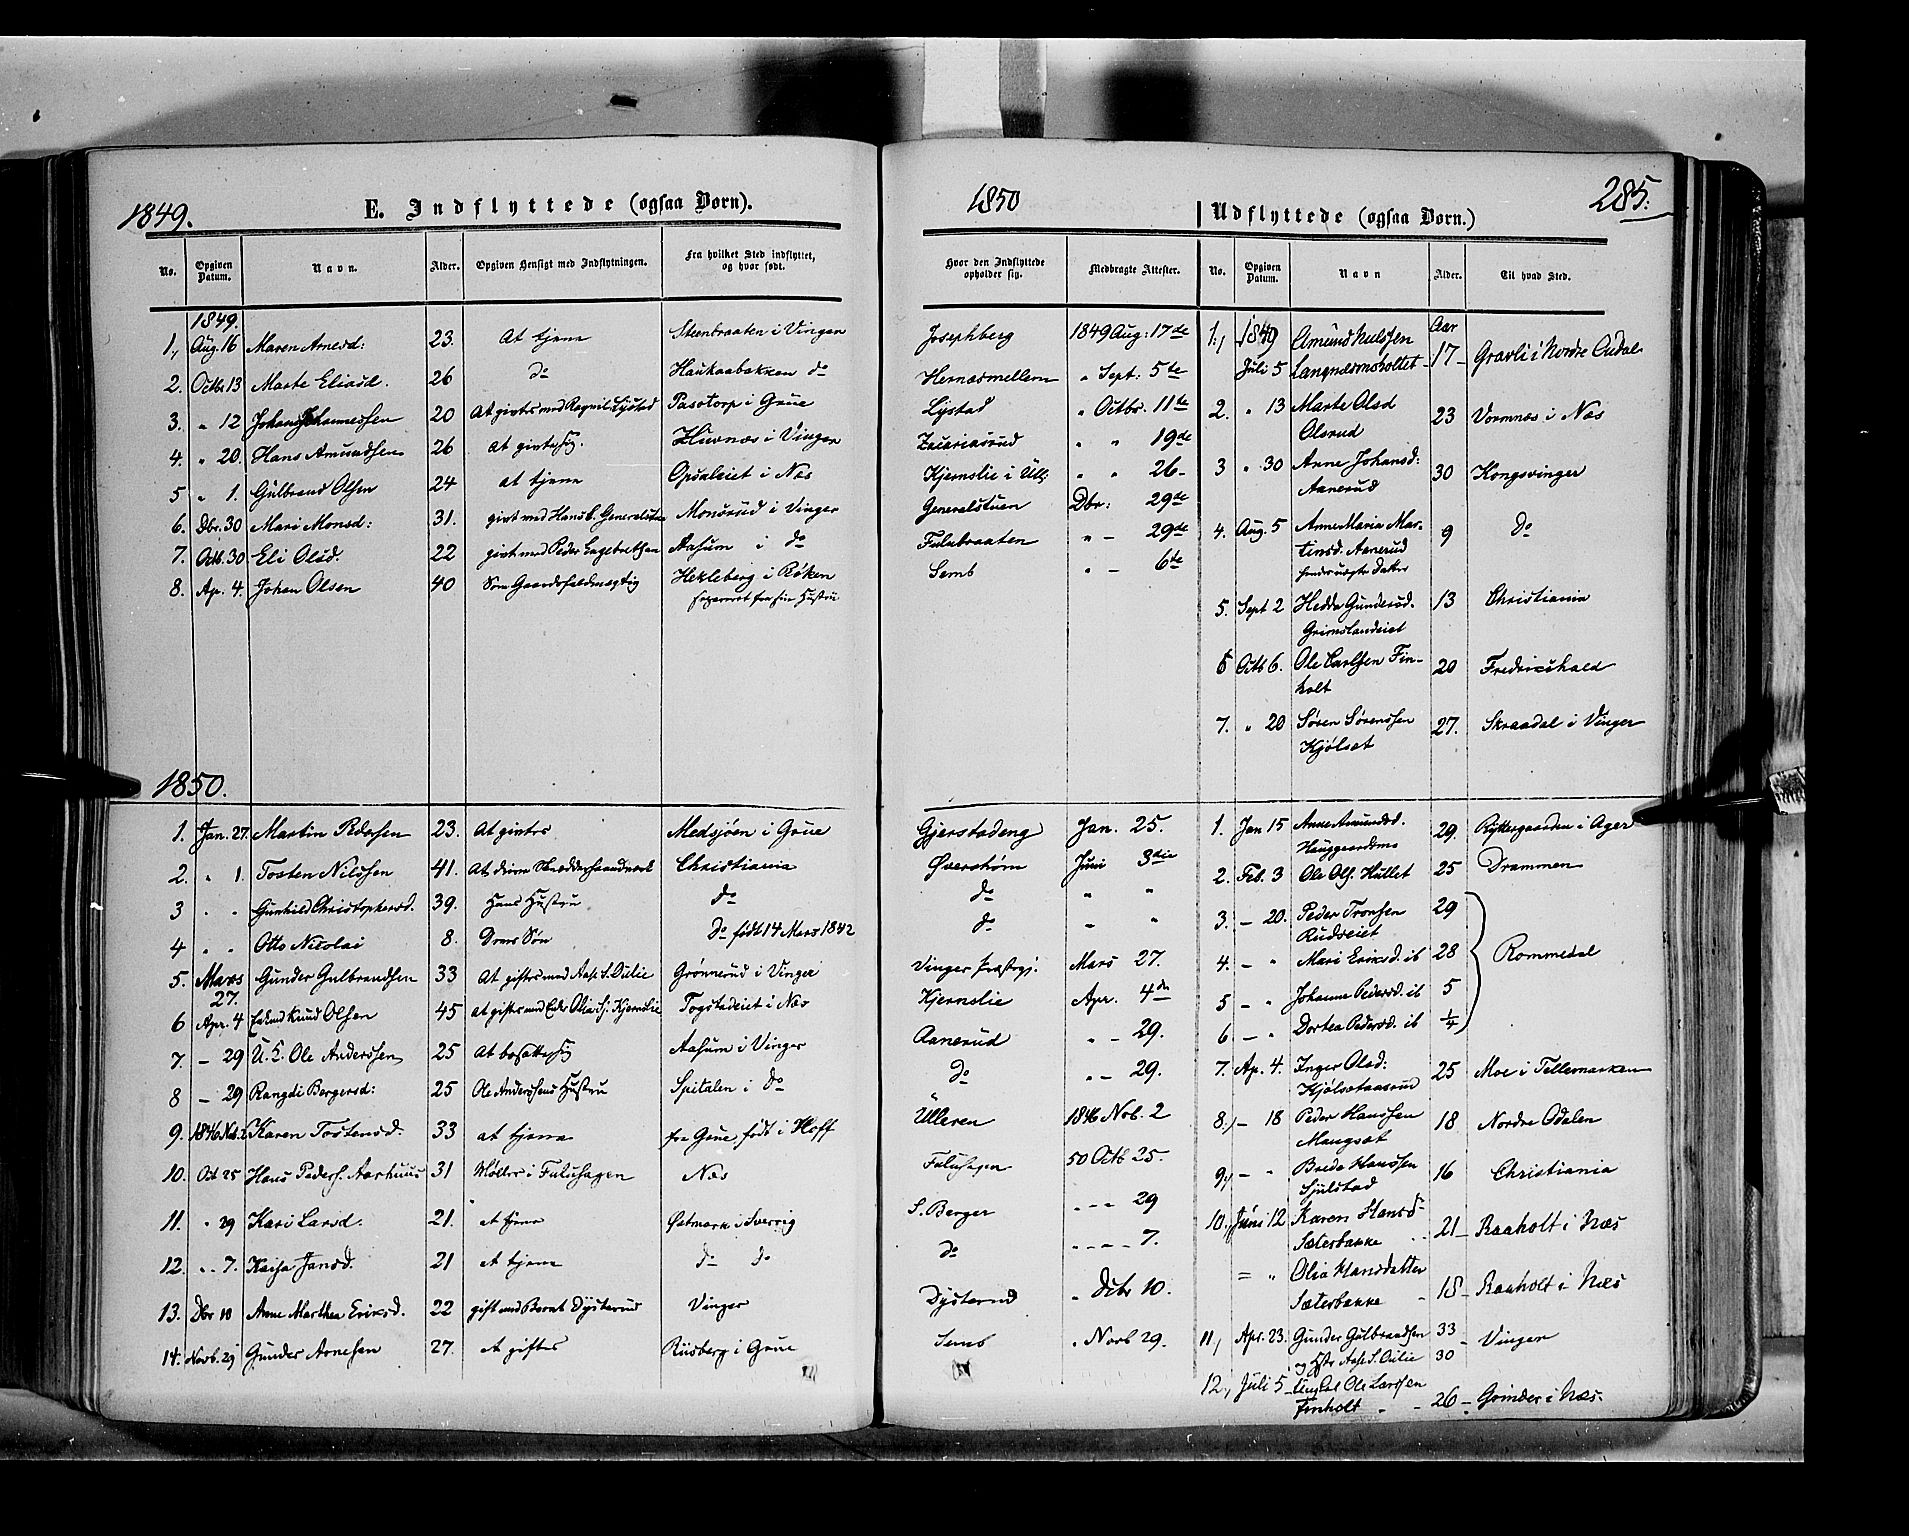 1849.
E. Indflyttede (ogsaa Børn).
No. Opgiven Datum. Navn. Alder. Opgiven Hensigt med Indflytningen. Fra hvilket Sted indflyttet, og hvor født.
1849.
1, Aug. 16 Maren Arnesd: 23. At tjene Steenbraaten i Vinger
2. Octbr 13 Marte Eliasd. 26 do Haukaabakken do
3. " 12 Johans Johannessen 20 At giftes med Ragnil Lystad Pasotorp i Grue
4. " 20. Hans Amundsen 26 at gifte sig. i Vinger
5 " 1. Gulbrand Olsen 24 at tjene Opsaleiet i Næs
6. Dbr. 30 Mari Monsd: 31. gift med Hans E. Generalstuen Monsrud i Vinger
7. Octb. 30 Eli Olsd. 22 gift med Peder Engebretsen Aasum i do
8. Ap. 4. Johan Olsen 40 Som Gaardsfuldmægtig Hekleberg i Røken
separeret fra sin Hustru
1850.
1. Jan. 27. Martin Pedersen 23. At giftes Medsjøen i Grue
2. " 1. Tosten Nilssen 41. At drive Skrædderhaandværk Christiania
3 " " Gunhild Christophersd. 39. Hans Hustru do
4 " " Otto Nicolai 8. Deres Søn do født 14 Mars 1842
5. Mars 27. Gunder Gulbrandsen 33 At giftes med Aase S. Oulie Grønnerud i Vinger
6 Apr. 4 Knud Olsen 45 at gifte med Enke Olia i Kjernslie Togstadeiet i Næs
7. – 29 U. K. Ole Anderssen 25 At bosætte sig Aasum i Vinger
8 – 29 Rangdi Bergersd: 25 Ole Anderssens Hustru Spitalen i do
9. 1846 Nob. 2 Karen Tostensd. 33 at tjene fra Grue født i Hoff
10. Oct 25 Hans Peders. Aarhuus 31 Møller i Fuluhagen Næs
11. " 29 Kari Larsd. 21. at tjene Østmark i Sverrig
12. " 7. Kaisa Jansd. 21 at tjene do do
13. Dbr 10 Anne Marthea Eriksd. 22 gift med Bernt Dysterud Vinger
14. Novb. 29 Gunder Arnesen 27. At giftes Riisberg i Grue
1850
Udflyttede (ogsaa Børn.)
285.
Hvor den Indflyttede opholder sig. Medbragte Attester. No. Opgiven Datum. Navn Alder. Til hvad Sted.
Josephberg 1849 Aug: 17de
Hernæsmellem " Sept: 5te
Lystad " Octbr. 11te
Zacariasrud " " 19de
Kjernslie i Ull. " " 26-
Generalstuen Dbr: 29de
Fulubraaten " – 29de
Semb " – 6te
1:, 1849 Amund Nilssen Aar
Juli 5 Langnæsmoholtet – 17 – Gravli i Nordre Oudal
2. " 13 Marte Olsd 23 Vormnæs i Næs
Olsrud
3 " 30 Anne Johansd: 30 Kongsvinger
Aanerud
4. Aug. 5 Anne Maria Mar- 9 do
tinsd. Aanerud
hendes uægte Datter
5. Sept 2 Hedda Gundersd. 13 Christiania
Grimslandeiet
6 Octb 6. Ole Carlsen Fin- 20 Fredrikshald
holt
7. " 20 Søren Sørenssen 27. Skraadal i Vinger
Kjølset
Gjerstadeng Jan. 25.
Øverstrøm Juni 3die
do " "
do " "
Vinger Præstegj. Mars 27.
Kjernslie Apr. 4de
Aanerud " – 29.
do " – 29.
Ulleren 1846 Nob. 2
Fuluhagen 50 Octb 25.
S. Berger " – – 29
do " – – – 7.
Dysterud " Dcbr 10.
Semb " Novb 29.
1. Jan 15 Anne Amundsd. 29. Ryttergaarden i Ager
Hauggaardsmo
2. Feb. 3 Ole Ols. Hullet 25 Drammen
3. – 20. Peder Tronsen 29
Rudseiet
4. – " Mari Eriksd. ib 28 Rommedal
5 – " Johanne Pedersd. ib 5
6 – " Dortea Pedersd. ib ¼
7. Ap. 4. Inger Olsd: 25 Moe i Tellemarken
Kjølsetaasrud
8., – 18 Peder Hanssen 18 Nordre Odalen
Mangset
9, – " Brede Hanssen 16 Christiania
Sjulstad
10, Juni 12 Karen Hansd- 21 – Raaholt i Næs
Sæterbakke
= " Olia Hansdatter
Sæterbakke 18 – Raaholt i Næs
11, Apr. 23. Gunder Gulbrandsen 33 – Vinger
og Hstr Aase S. Oulie 30
12, Juli 5 – Ungkal Ole Larssen
Finholt 26 – Grinder i Næs.